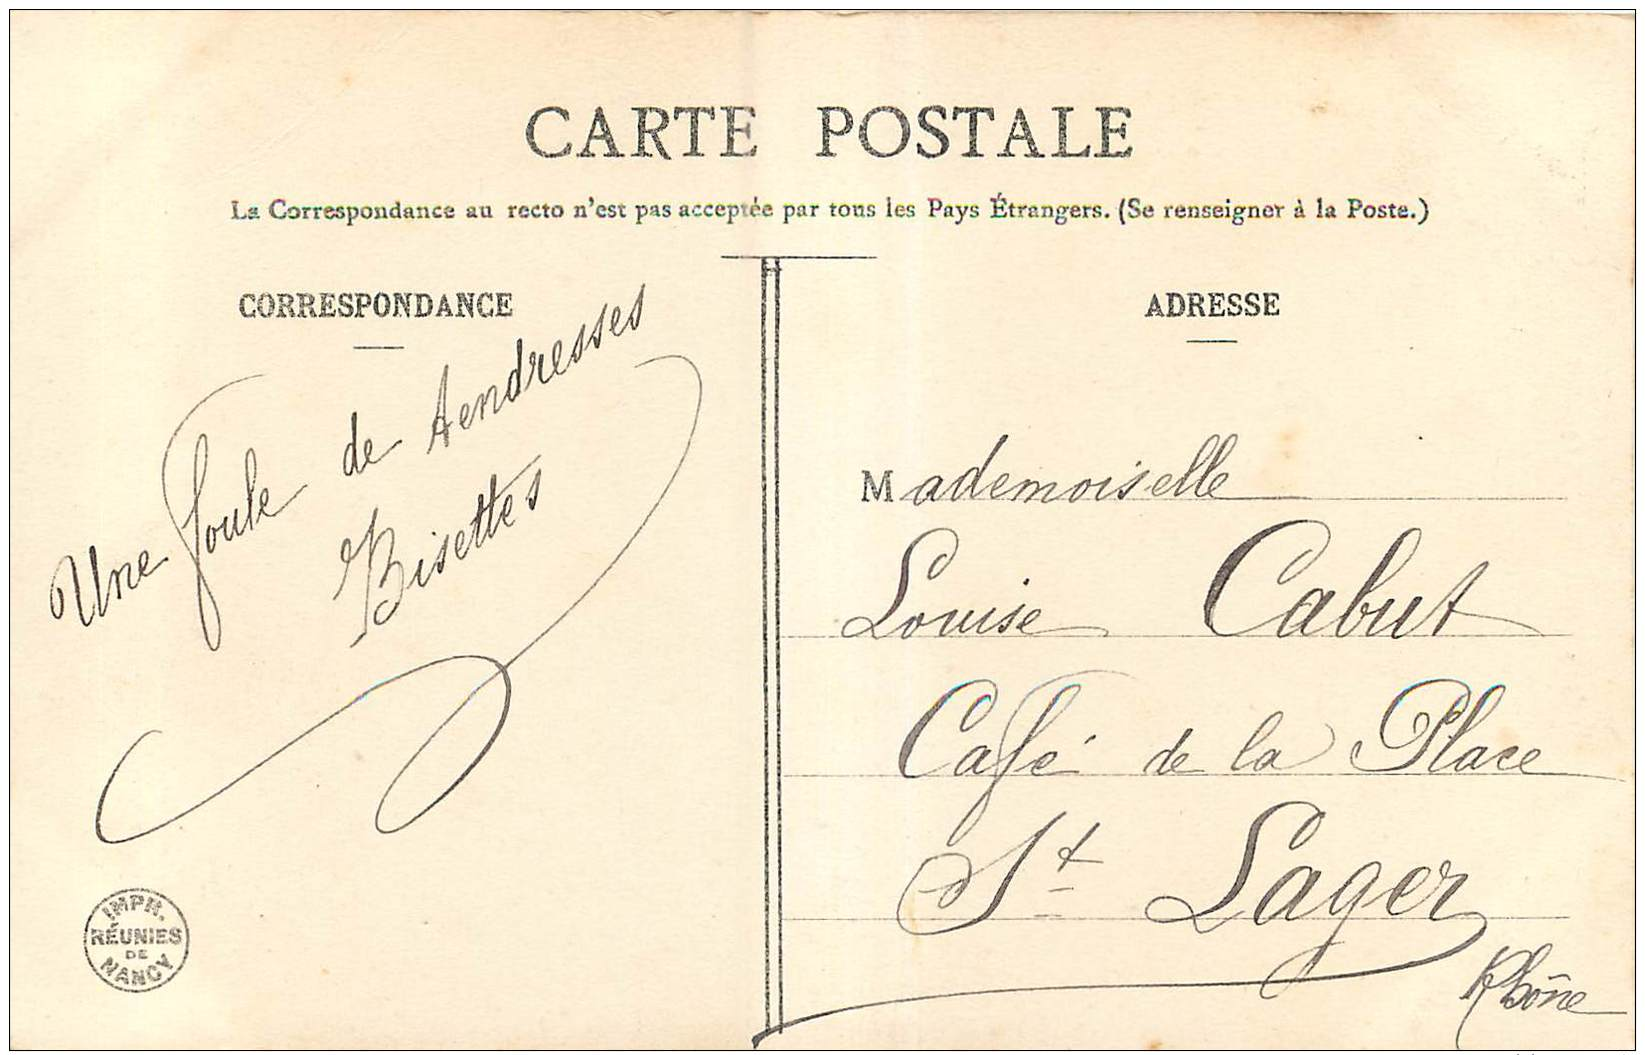 CARTE POSTALE
La Correspondance au recto n'est pas acceptée par tous les Pays Étrangers. (Se renseigner à la Poste.)
CORRESPONDANCE
Une foule de tendresses
Bisettes
IMPR.
RÉUNIES
DE
NANCY
ADRESSE
Mademoiselle
Louise Cabut
Café de la Place
St Lager
Rhône